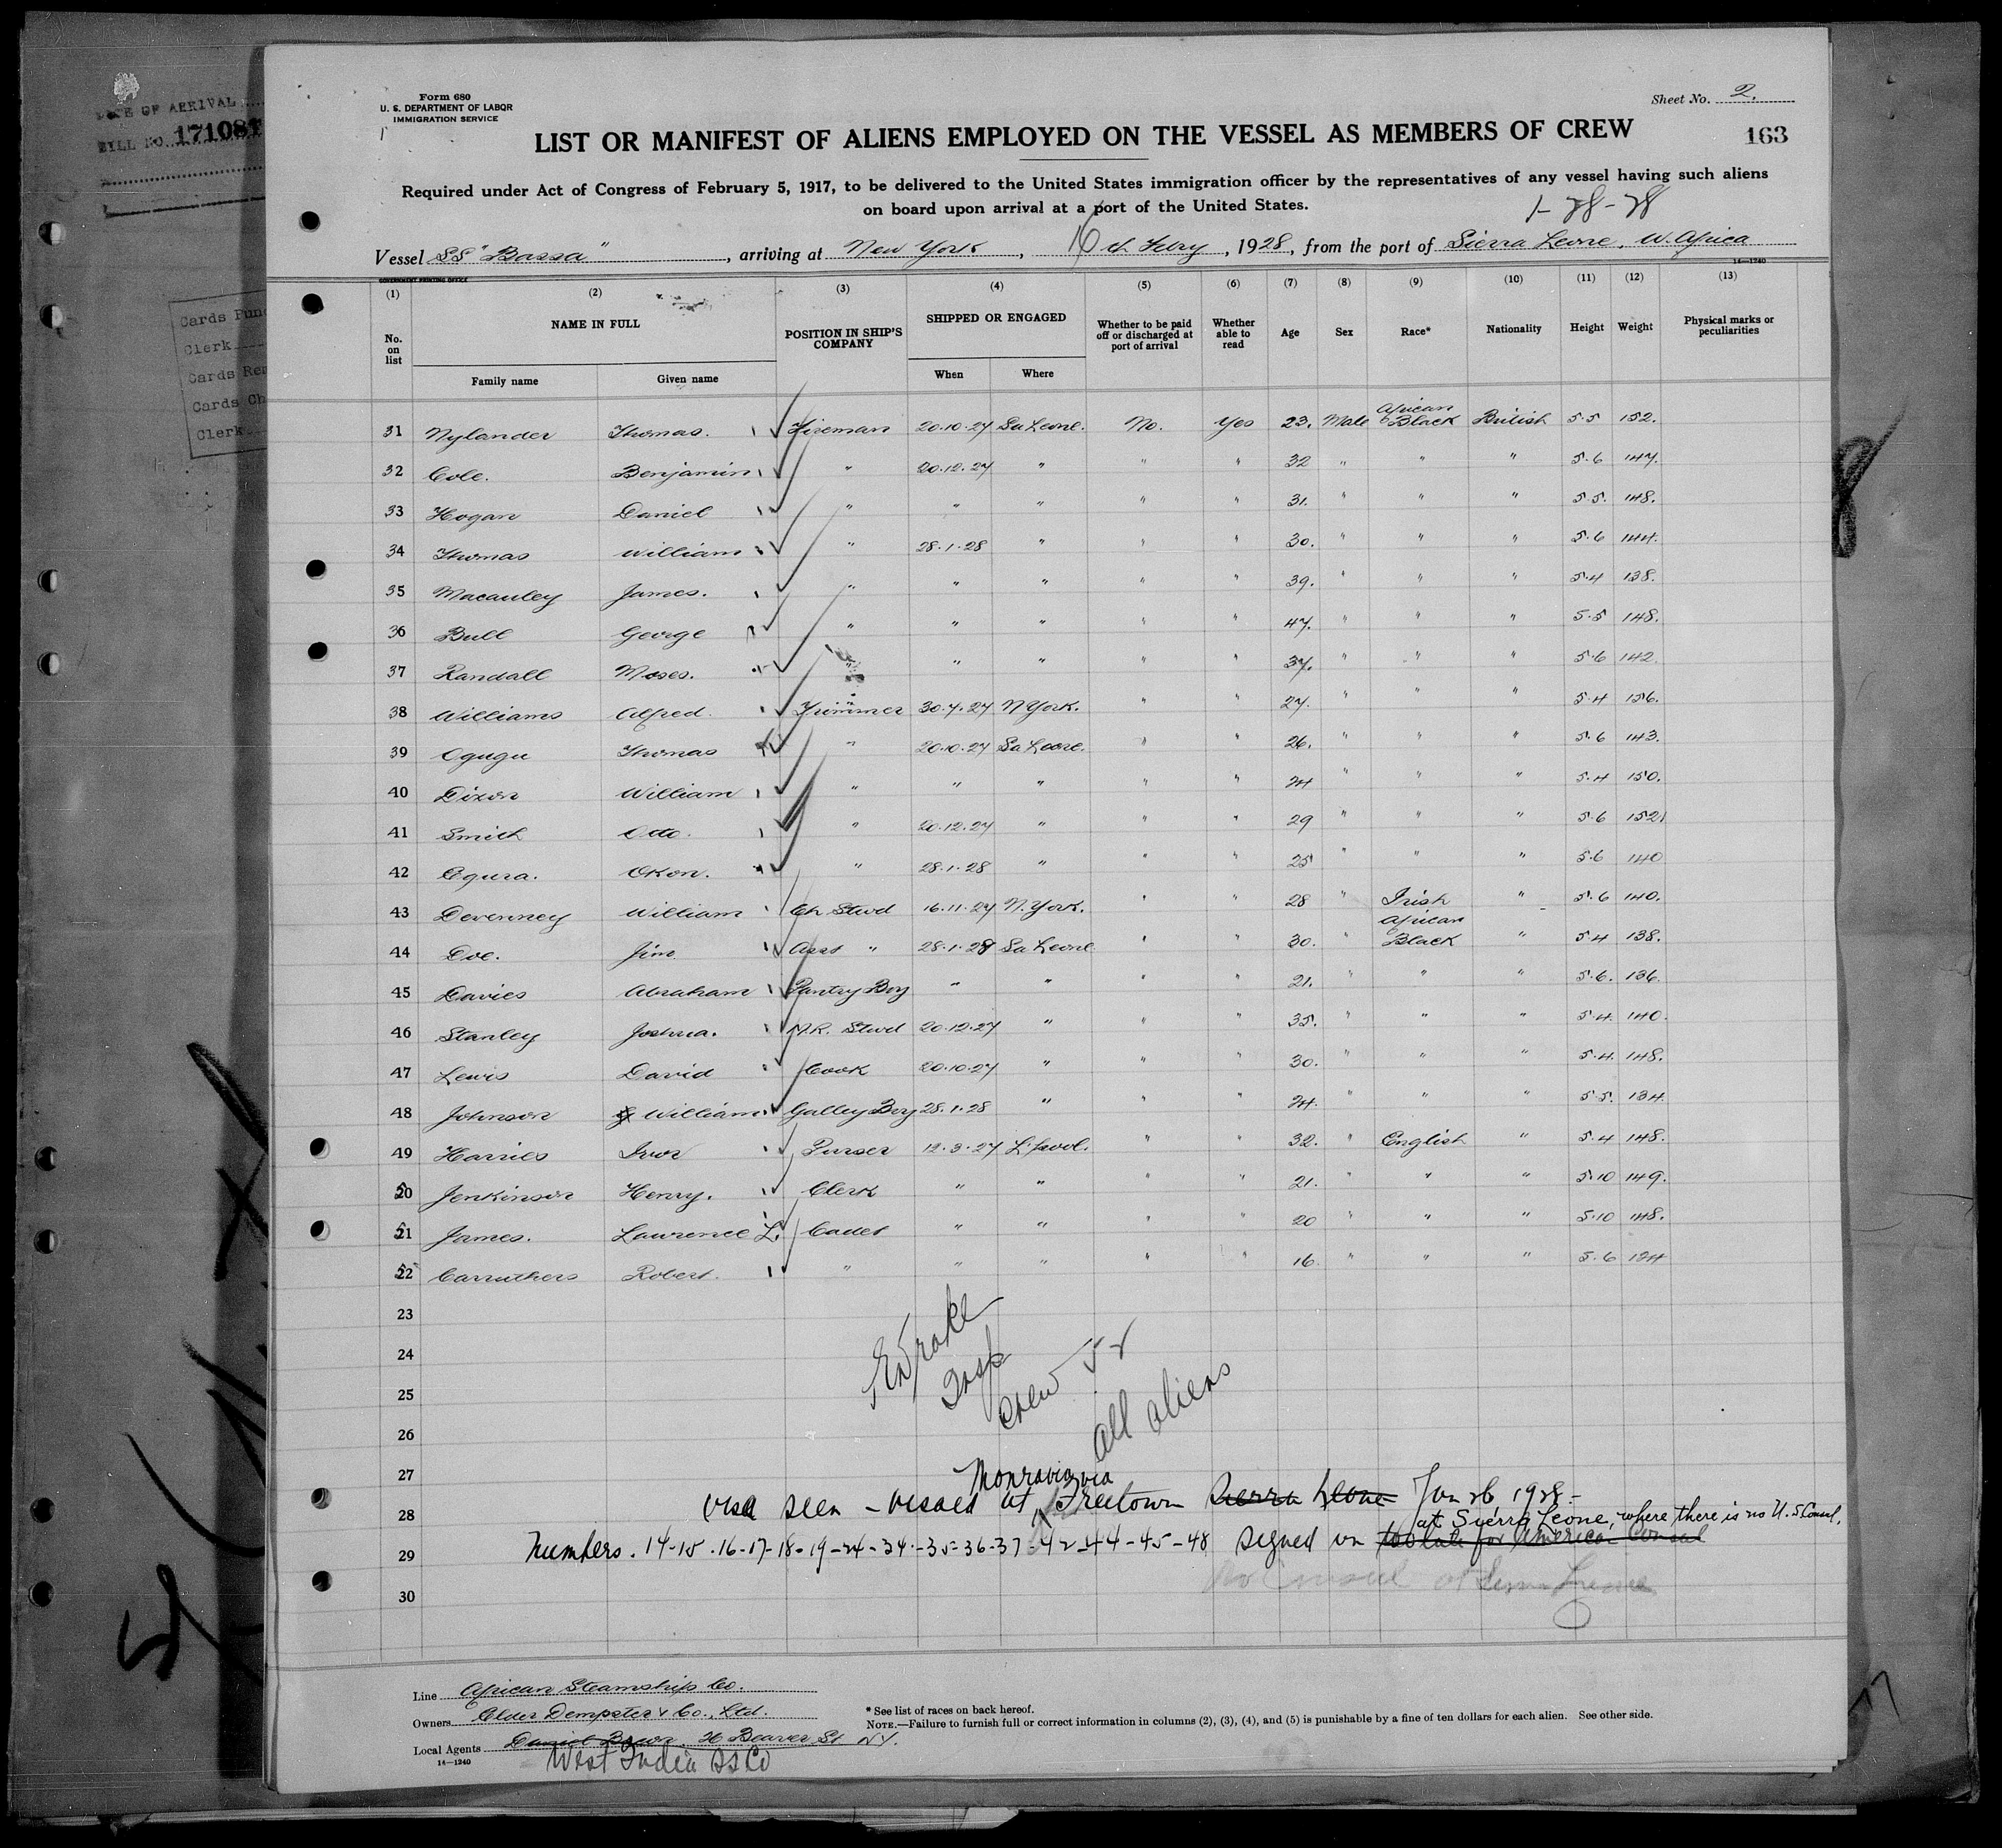 DATE OF ARRIVAL
BILL NO. 171081
Cards Punc
Clerk
Cards Rem
Cards Ch
Clerk
Form 680
U. S. DEPARTMENT OF LABOR
IMMIGRATION SERVICE
Sheet No. 2.
163
LIST OR MANIFEST OF ALIENS EMPLOYED ON THE VESSEL AS MEMBERS OF CREW
Required under Act of Congress of February 5, 1917, to be delivered to the United States immigration officer by the representatives of any vessel having such aliens
on board upon arrival at a port of the United States.
1-28-28
Vessel SS "Bassa", arriving at New York, 16th Febry, 1928, from the port of Sierra Leone, W. Africa
GOVERNMENT PRINTING OFFICE 14—1240
(1) (2) (3) (4) (5) (6) (7) (8) (9) (10) (11) (12) (13)
No. on list NAME IN FULL POSITION IN SHIP'S COMPANY SHIPPED OR ENGAGED Whether to be paid off or discharged at port of arrival Whether able to read Age Sex Race* Nationality Height Weight Physical marks or peculiarities
Family name Given name When Where
31 Nylander Thomas. Fireman 20.10.27 Sa Leone. No. Yes 23. Male African Black British 5.5 152.
32 Cole. Benjamin " 20.12.27 " " " 32 " " " 5.6 147.
33 Hogan Daniel " " " " " 31. " " " 5.5. 148.
34 Thomas William " 28.1.28 " " " 30. " " " 5.6 144.
35 Macauley James. " " " " " 39. " " " 5.4 138.
36 Bull George " " " " " 47. " " " 5.5 148.
37 Randall Moses. " " " " " 37. " " " 5.6 142.
38 Williams Alfred. Trimmer 30.7.27 N York. " " 27. " " " 5.4 156.
39 Ogugu Thomas " 20.10.27 Sa Leone. " " 26. " " " 5.6 143.
40 Dixon William " " " " " 24 " " " 5.4 150.
41 Smith Otto. " 20.12.27 " " " 29 " " " 5.6 152
42 Egura. Okon. " 28.1.28 " " " 25 " " " 5.6 140
43 Devenney William Ch Stwd 16.11.27 N. York. " " 28 " Irish " 5.6 140.
44 Doe. Jim Asst " 28.1.28 Sa Leone " " 30. " African Black " 5.4 138.
45 Davies Abraham Pantry Boy " " " " 21. " " " 5.6. 136.
46 Stanley Joshua. M.R. Stwd 20.12.27 " " " 35. " " " 5.4. 140.
47 Lewis David Cook 20.10.27 " " " 30. " " " 5.4. 148.
48 Johnson William. Galley Boy 28.1.28 " " " 24. " " " 5.5. 134.
49 Harries Ivor Purser 12.3.27 L'pool. " " 32. " English " 5.4 148.
50 Jenkinson Henry. Clerk " " " " 21. " " " 5.10 149.
51 James. Lawrence L. Cadet " " " " 20 " " " 5.10 148.
52 Carruthers Robert. " " " " " 16. " " " 5.6 124
23
24
25
26
27
28
29
30
Drake
Insp
crew 52
all aliens
Monrovia via
visa seen - visaed at Freetown Sierra Leone Jan 26, 1928.-
at Sierra Leone, where there is no U.S Consul.
Numbers. 14-15-16-17-18-19-24-34-35-36-37-42-44-45-48 signed on too late for American Consul
No Consul at Sierra Leone
Line African Steamship Co.
Owners Elder Dempster & Co., Ltd.
Local Agents Daniel Bacon. 26 Beaver St NY.
West India SS Co
14—1240
* See list of races on back hereof.
NOTE.—Failure to furnish full or correct information in columns (2), (3), (4), and (5) is punishable by a fine of ten dollars for each alien. See other side.